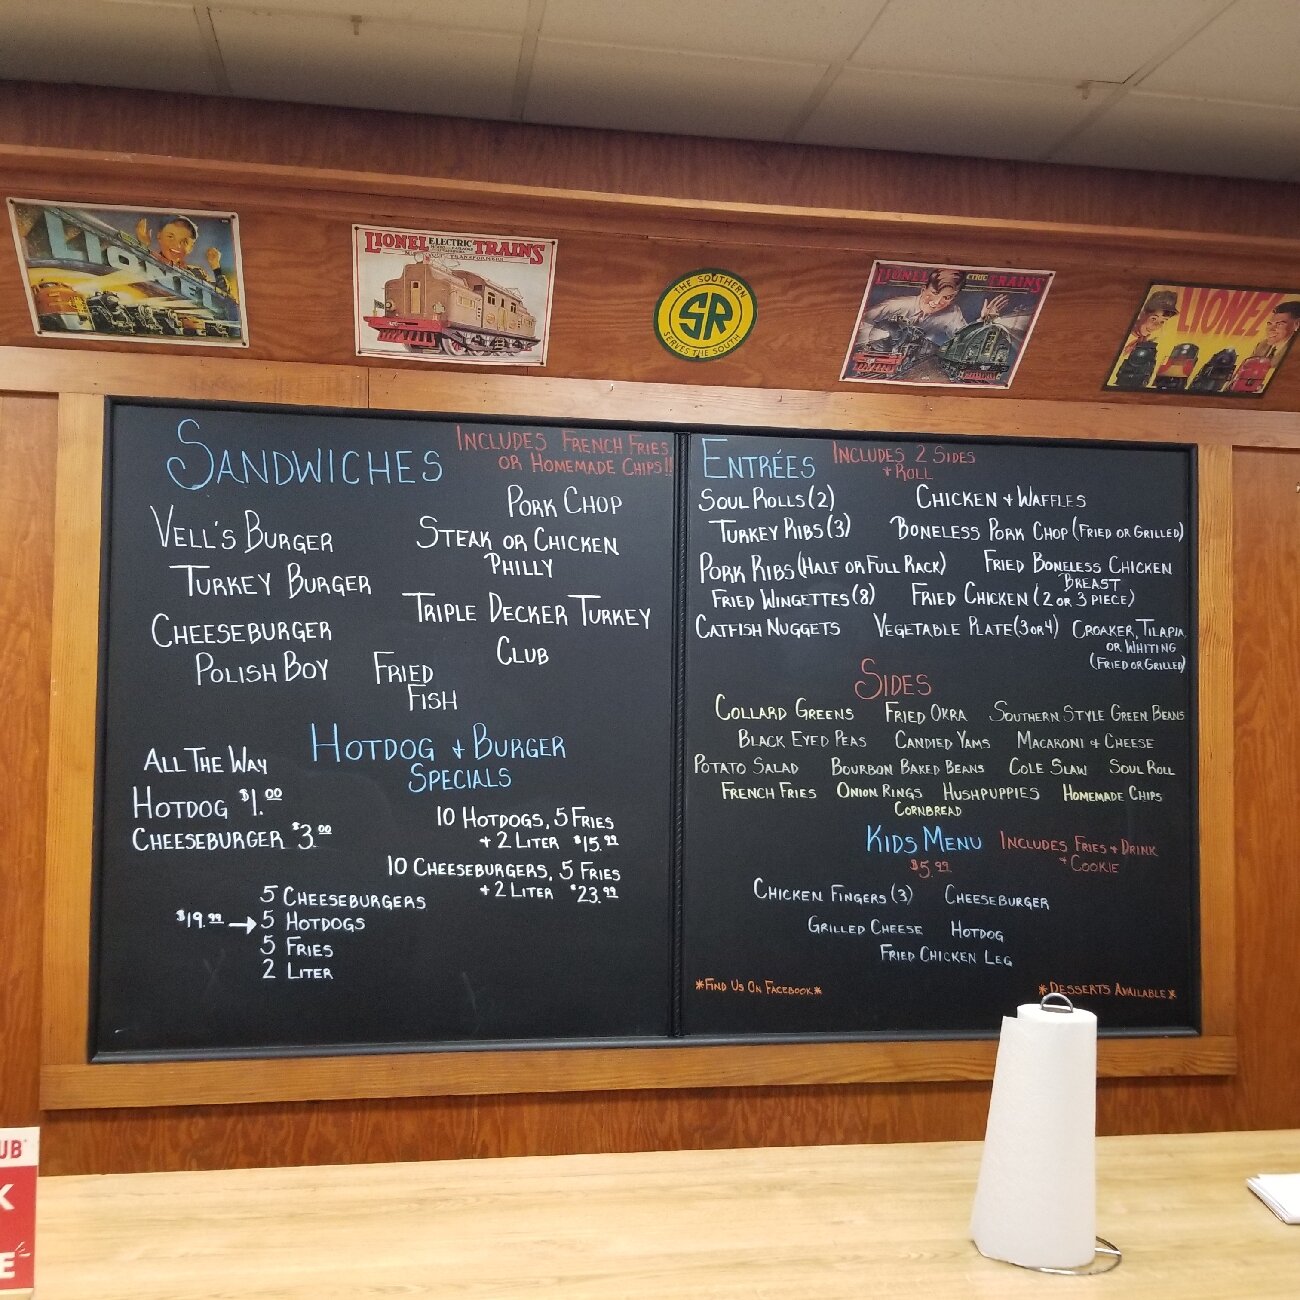 LIONEL
LIONEL ELECTRIC TRAINS
THE SOUTHERN
SR
SERVES THE SOUTH
LIONEL ELECTRIC TRAINS
LIONEL
SANDWICHES
INCLUDES FRENCH FRIES
OR HOMEMADE CHIPS!!
PORK CHOP
VELL'S BURGER
STEAK OR CHICKEN
PHILLY
TURKEY BURGER
TRIPLE DECKER TURKEY
CLUB
CHEESEBURGER
POLISH BOY
FRIED
FISH
HOTDOG + BURGER
SPECIALS
ALL THE WAY
HOTDOG $1.00
CHEESEBURGER $3.00
10 HOTDOGS, 5 FRIES
+ 2 LITER $15.99
10 CHEESEBURGERS, 5 FRIES
+ 2 LITER $23.99
5 CHEESEBURGERS
$19.99 → 5 HOTDOGS
5 FRIES
2 LITER
ENTRÉES
INCLUDES 2 SIDES
+ ROLL
SOUL ROLLS (2) CHICKEN + WAFFLES
TURKEY RIBS (3) BONELESS PORK CHOP (FRIED OR GRILLED)
PORK RIBS (HALF OR FULL RACK) FRIED BONELESS CHICKEN
BREAST
FRIED WINGETTES (8) FRIED CHICKEN (2 OR 3 PIECE)
CATFISH NUGGETS VEGETABLE PLATE (3 OR 4) CROAKER, TILAPIA
OR WHITING
(FRIED OR GRILLED)
SIDES
COLLARD GREENS FRIED OKRA SOUTHERN STYLE GREEN BEANS
BLACK EYED PEAS CANDIED YAMS MACARONI + CHEESE
POTATO SALAD BOURBON BAKED BEANS COLE SLAW SOUL ROLL
FRENCH FRIES ONION RINGS HUSHPUPPIES HOMEMADE CHIPS
CORNBREAD
KIDS MENU INCLUDES FRIES + DRINK
$5.99 + COOKIE
CHICKEN FINGERS (3) CHEESEBURGER
GRILLED CHEESE HOTDOG
FRIED CHICKEN LEG
*FIND US ON FACEBOOK* *DESSERTS AVAILABLE*
UB
K
E